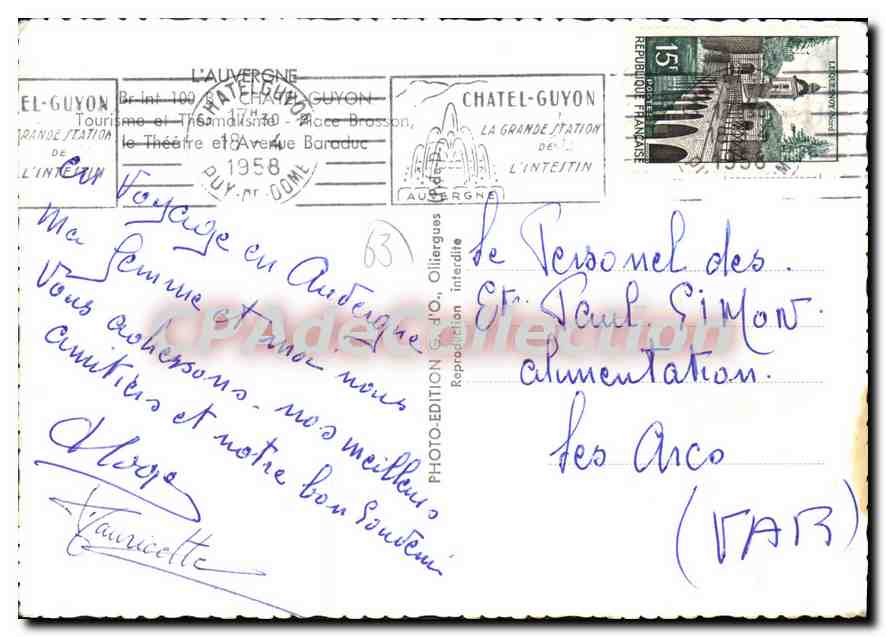 L'AUVERGNE
Br-Int 100 CHATEL-GUYON
Tourisme et Thermalisme Place Brosson,
le Théâtre et Avenue Baraduc
CHATEL-GUYON
17H30
18-4
1958
PUY-DE-DOME
EL-GUYON
GRANDE STATION
DE
L'INTESTIN
CHATEL-GUYON
LA GRANDE STATION
DE
L'INTESTIN
AUVERGNE
15F
POSTES
REPUBLIQUE FRANÇAISE
LE QUESNOY (Nord)
1958
en Voyage en Auvergne
Ma femme et moi nous
Vous adressons nos meilleurs
amitiés et notre bon Souvenir
Mauricette
63
PHOTO-EDITION G. d'O., Olliergues (P.-de-D.)
Reproduction interdite
Le Personel des
Ets Paul SiMON
alimentation.
Les Arcs
(VAR)
CPAdeCollection